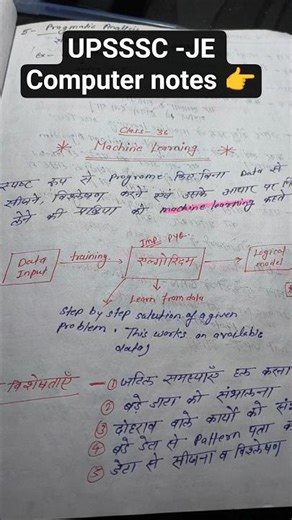 5- Pragmatic Analysis
UPSSSC -JE
Computer notes 👉
Class- 36
* Machine Learning *
स्पष्ट रूप से Programe किए बिना Data से
सीखने, विश्लेषण करने एवं उसके आधार पर
लेने की प्रक्रिया को machine learning कहते
Imp PYQ
Data Input
training
एल्गोरिदम
Logical model
Learn from data
Step by step solution of a given
problem. This works on available
data
विशेषताएँ - ① जटिल समस्याएँ हल करना
② बड़े डाटा को संभालना
③ दोहराव वाले कार्यों को
④ बड़े डेटा से Pattern पता
⑤ डेटा से सीखना व विश्लेषण